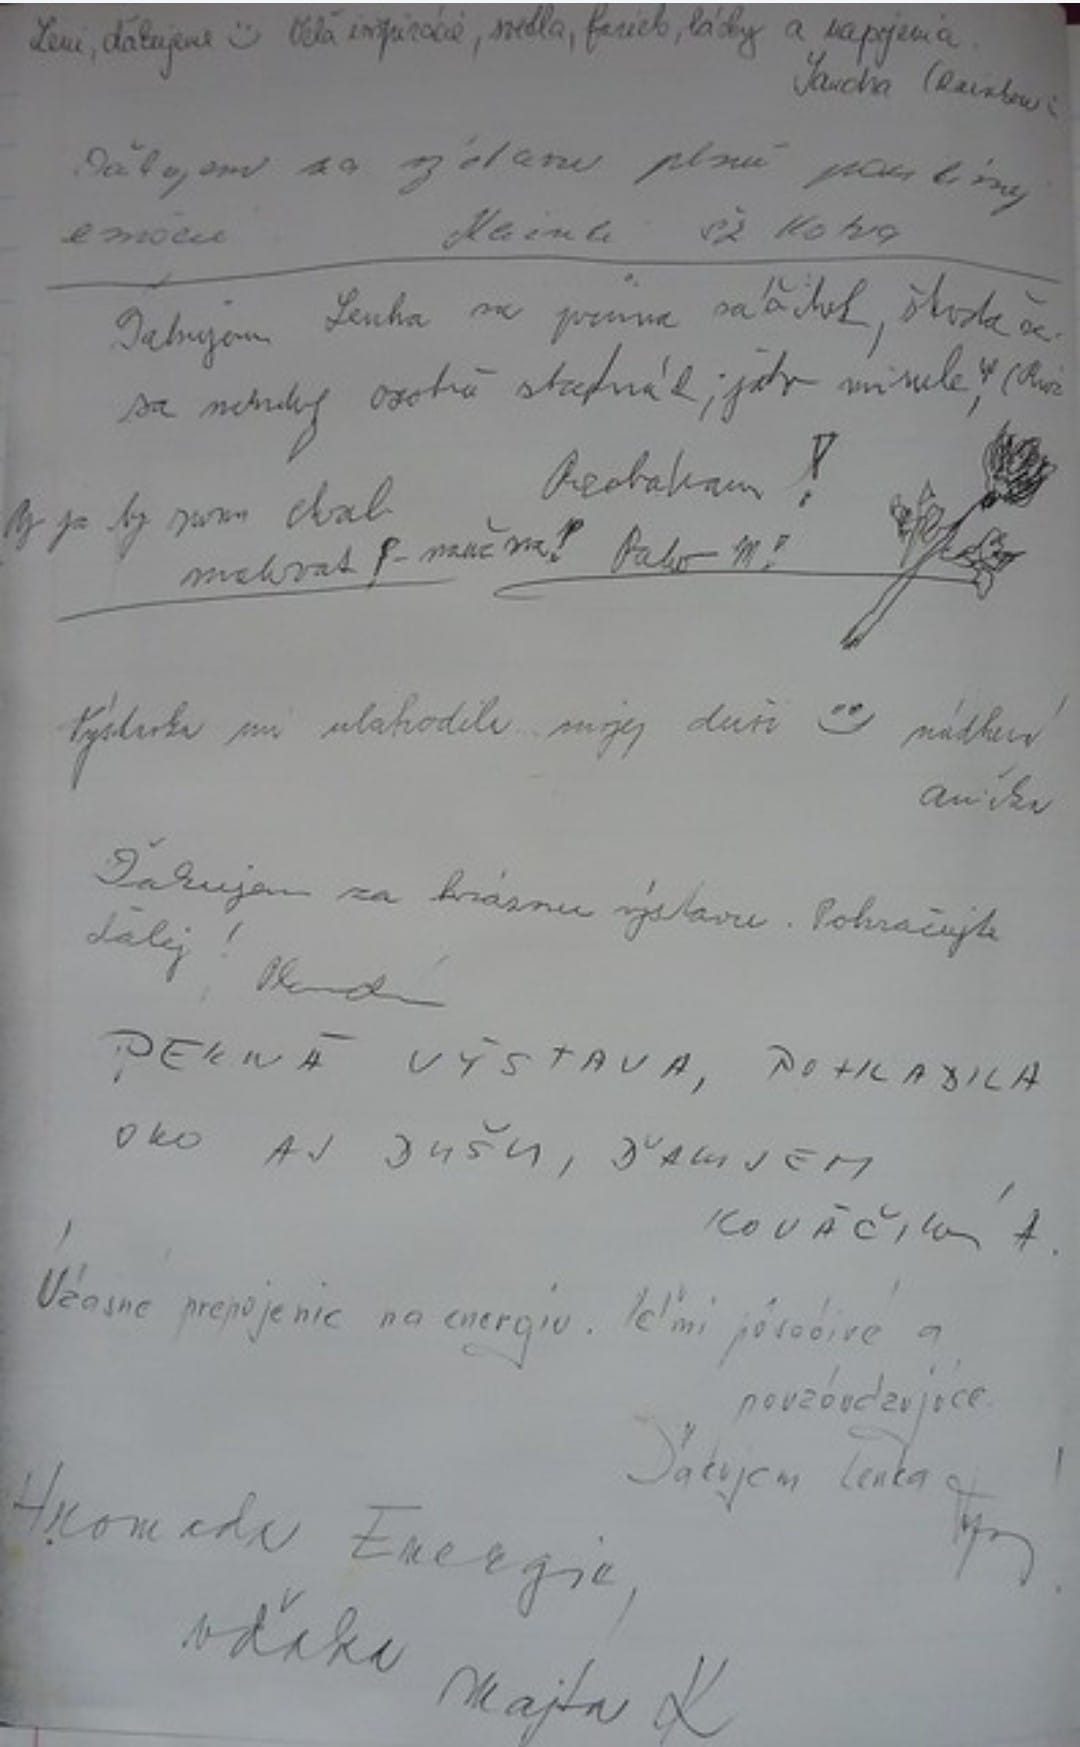 Leni, ďakujeme Veľa inšpirácie, svetla, farieb, lásky a napojenia.
Ďakujem za výstavu plnú pozitívnej
emócie
Ďakujem Lenka za príjma zážitok, škoda že
sa nebudeme osobně stretnúť,
Aj ja by som chcel
malovať nauč ma! Paľo M!
Výstavka mi ulahodila mojej duši nádherná
Anička
Ďakujem za krásnu výstavu. Pokračujte
ďalej!
PEKNÁ VÝSTAVA, POHLADILA
OKO AJ DUŠU, ĎAKUJEM
KOVÁČIKOVÁ A.
Úžasné prepojenie na energiu. Veľmi pôsobivé a
povzbudzujúce.
Ďakujem Lenka
Hromada Energie,
vďaka
Majka K